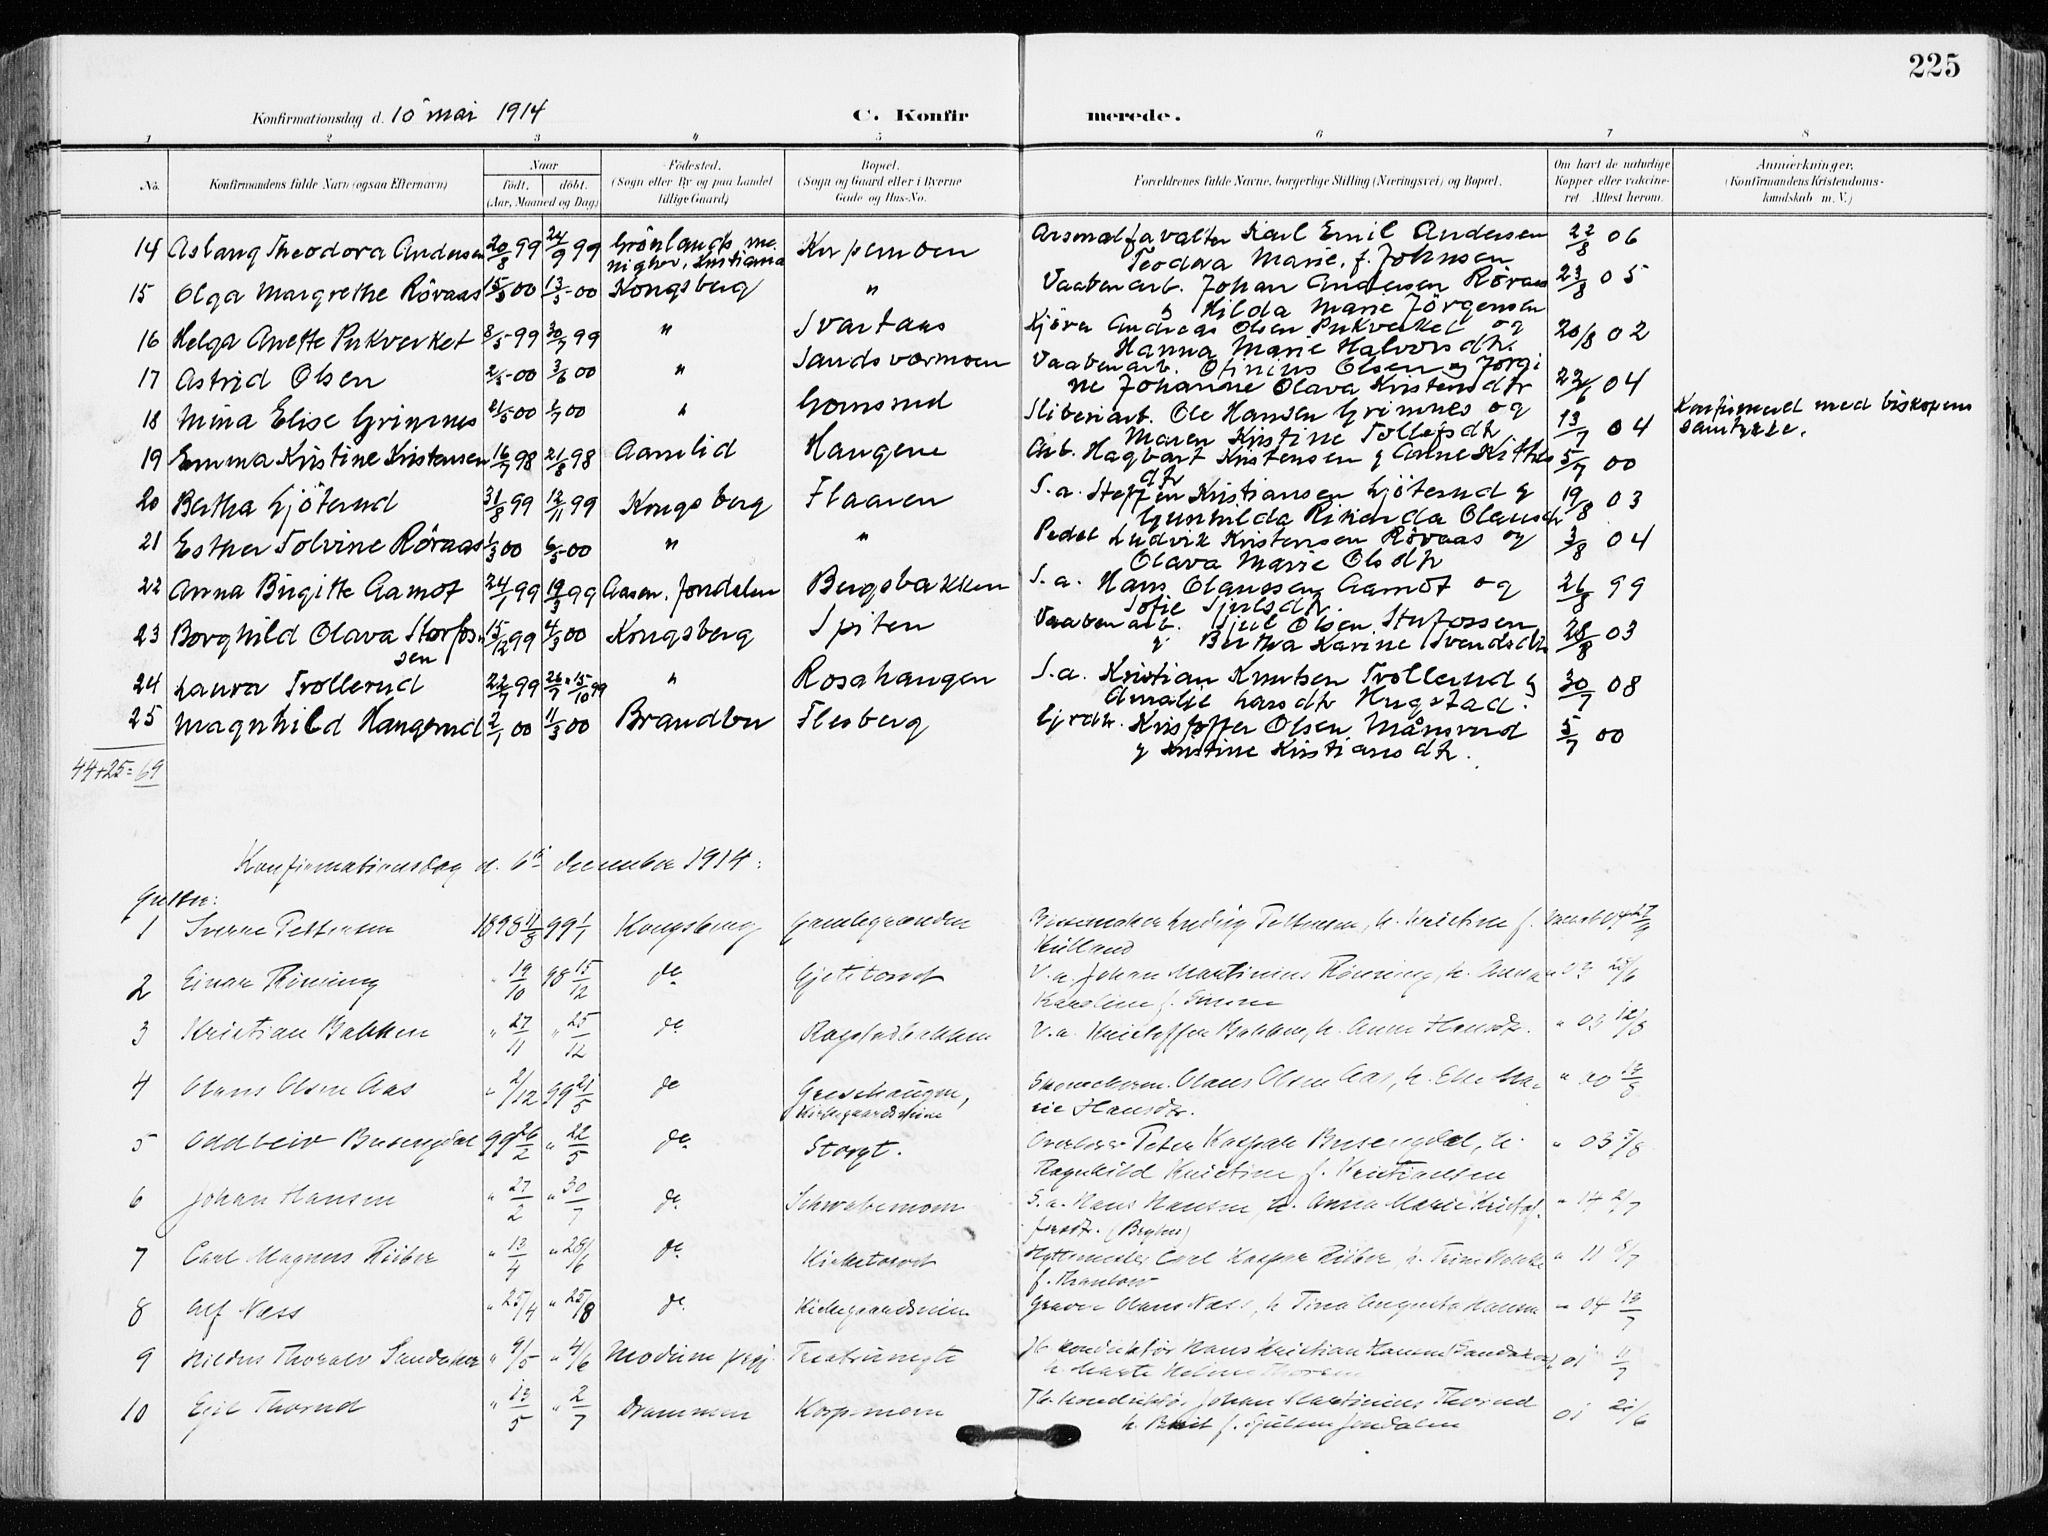 225
Konfirmationsdag d. 10 mai 1914 C. Konfir merede.
1 2 3 4 5 6 7 8
No. Konfirmandens fulde Navn (ogsaa Efternavn) Naar født, døbt. (Aar, Maaned og Dag) Fødested. (Sogn eller By og paa Landet tillige Gaard) Bopæl. (Sogn og Gaard eller i Byerne Gade og Hus-No. Forældrenes fulde Navne, borgerlige Stilling (Næringsvei) og Bopæl. Om havt de naturlige Kopper eller vaccineret Attest herom. Anmærkninger. (Konfirmandens Kristendomskundskab m. V.)
14 Aslaug Theodora Andersen 20/8 99 24/9 99 Grönlands menighet, Kristiania Korpemoen Arsenalfovalter Karl Emil Andersen 22/8 06
Teodora Marie, f. Johnsen
15 Olga Margrethe Röraas 15/3 00 13/5-00 Kongsberg " Vaabenarb. Johan Andersen Röraas 23/8 05
og Hilda Marie Jörgensen
16 Helga Anette Pukverket 8/5-99 30/7 99 " Svartaas Kjörer Andreas Olsen Pukverket og 20/8 02
Hanna Marie Halvorsdtr.
17 Astrid Olsen 2/5-00 3/6 00 " Sandsværmoen Vaabenarb. Olsen og Jörgi
ne Johanne Olava Kristensdtr 22/6 04
18 Mina Elise Grimnes 21/5-00 1/7 00 " Gomsrud Sliberiarb. Ole Hansen Grimnes og 13/7 04 Konfirmeret med biskopens
Maren Kristine Tollefsdtr samtykke.
19 Emma Kristine Kristensen 16/7 98 21/8 98 Aamlid Haugene Arb. Hagbart Kristensen og 5/7 00
dtr
20 Bertha Gjöterud 31/8 99 12/11 99 Kongsberg Flaaren S.a. Steffen Kristiansen Gjöterud og 19/8 03
Gunhilda Rikarda Olausdr
21 Esther Tolvine Röraas 1/3 00 6/5-00 " " Pedel Ludvik Kristensen Röraas og 3/8 04
Olava Marie Olsdtr
22 Anna Birgitte Aamot 24/1 99 19/3 99 Aasen, Jondalen Bergsbakken S.a. Hans Olaussen Aamot og 26/8 99
Sofie Sjulsdtr.
23 Borghild Olava Storfos- 15/12 99 4/3 00 Kongsberg Spiten Vaabenarb. Sjul Olsen Storfossen
sen og Bertha Karine Svendsdtr 28/8 03
24 Laura Trollerud 22/7 99 26/7 15/10 99 " Rosahaugen S.a. Kristian Knutsen Trollerud og 30/7 08
Amalie Larsdtr Hugstad.
25 Magnhild Haugerud 2/1 00 11/3 00 Brandbu Flesberg Gjrdbr. Kristoffer Olsen Månsrud 5/7 00
og Kristine Kristiansdtr.
44+25=69
Konfirmationsdag d. 6te december 1914:
Gutter:
1 Sverre Pettersen 1898 11/8 99 1/1 Kongsberg Gamlegrænden Bössemaker Ludvig Pettersen, h. Kristine f. 04 27/9
Killand
2 Einar Rönning " 19/10 98 15/12 do Gjetetorvet V.a. Johan Martinius Rönning, h. Anna 03 25/6
Karoline f. Simon
3 Kristian Bakken " 27/11 " 25/12 do V.a. Kristoffer Bakken, h. Anne Hansdr. " 03 12/8
4 Olaus Olsen Aas " 2/12 99 21/5 do Greschaugen, Olaus Olsen Aas, h. Else Ma- " 00 12/8
Kirkegaardsveien rie Hansdr.
5 Oddleiv Busengdal 99 26/2 " 22/5 do Storgt. Peter Kaspar Busengdal, h. " 03 5/8
Ragnhild Kristine f. Kristiansen
6 Johan Hansen " 27/2 " 30/7 do Schwabemoen S.a. Hans Hansen, h. Anna Marie Kristof- " 14 2/7
fersdr.
7 Carl Magnus Riiber " 13/4 " 25/6 do Kirketorvet Hyttemester Carl Kaspar Riiber, h. " 11 8/7
f. Thaulow
8 Alf Næss " 25/4 " 25/8 do Kirkegaardsveien Graver Olaus Næss, h Tina Augusta Hansen " 04 13/7
9 Thoralv Sandaker " 9/5 " 4/6 Modum prgj. Jb. konduktör Hans Kristian Hansen Sandaker, 01 11/7
h. Marte Helene Thoresen
10 Egil Thorud " 13/5 " 2/7 Drammen Korpemoen Jb. konduktör Johan Martinius Thorud 01 21/6
h. Berit f. Jondalen